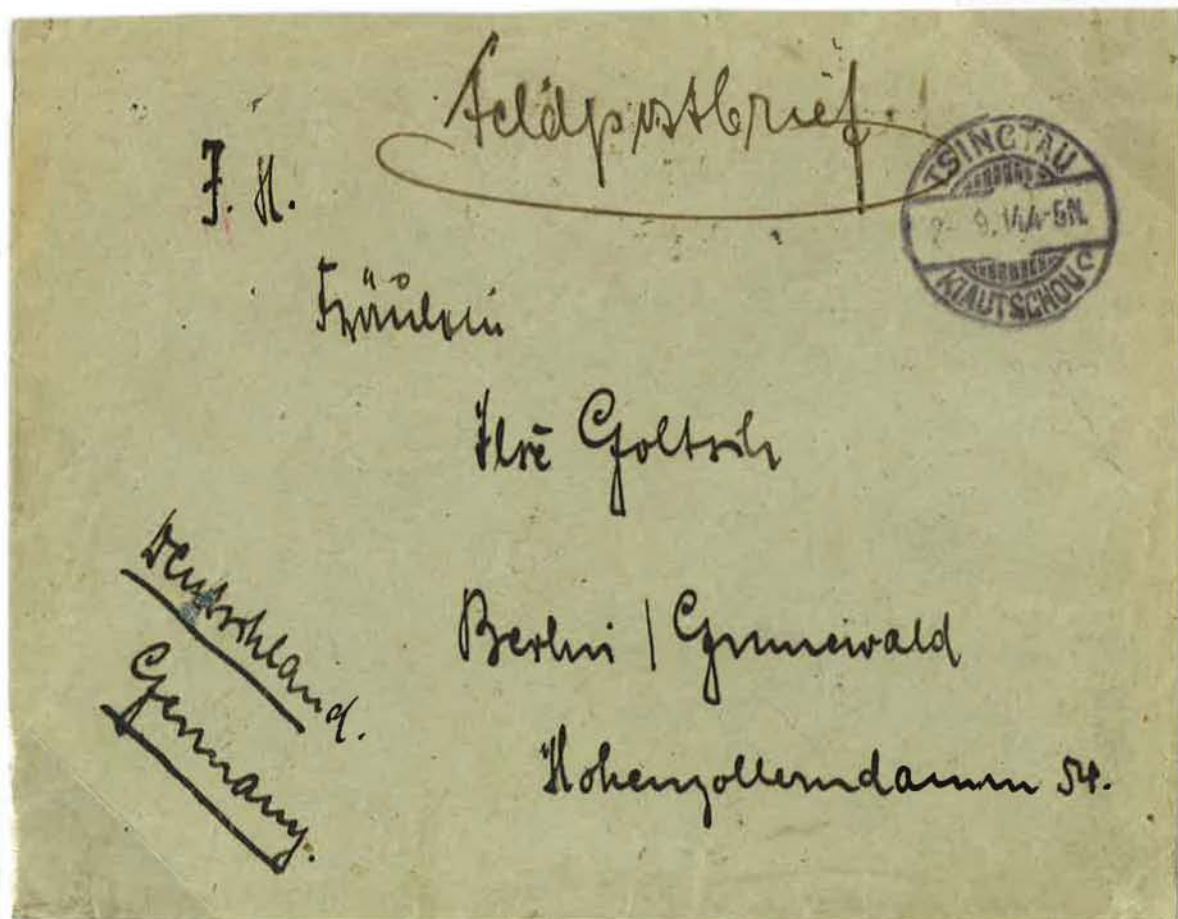 Feldpostbrief.
TSINGTAU
KIAUTSCHOU
J. H.
Fräulein
Ilse
Berlin / Grunewald
Hohenzollerndamm 54.
Deutschland.
Germany.